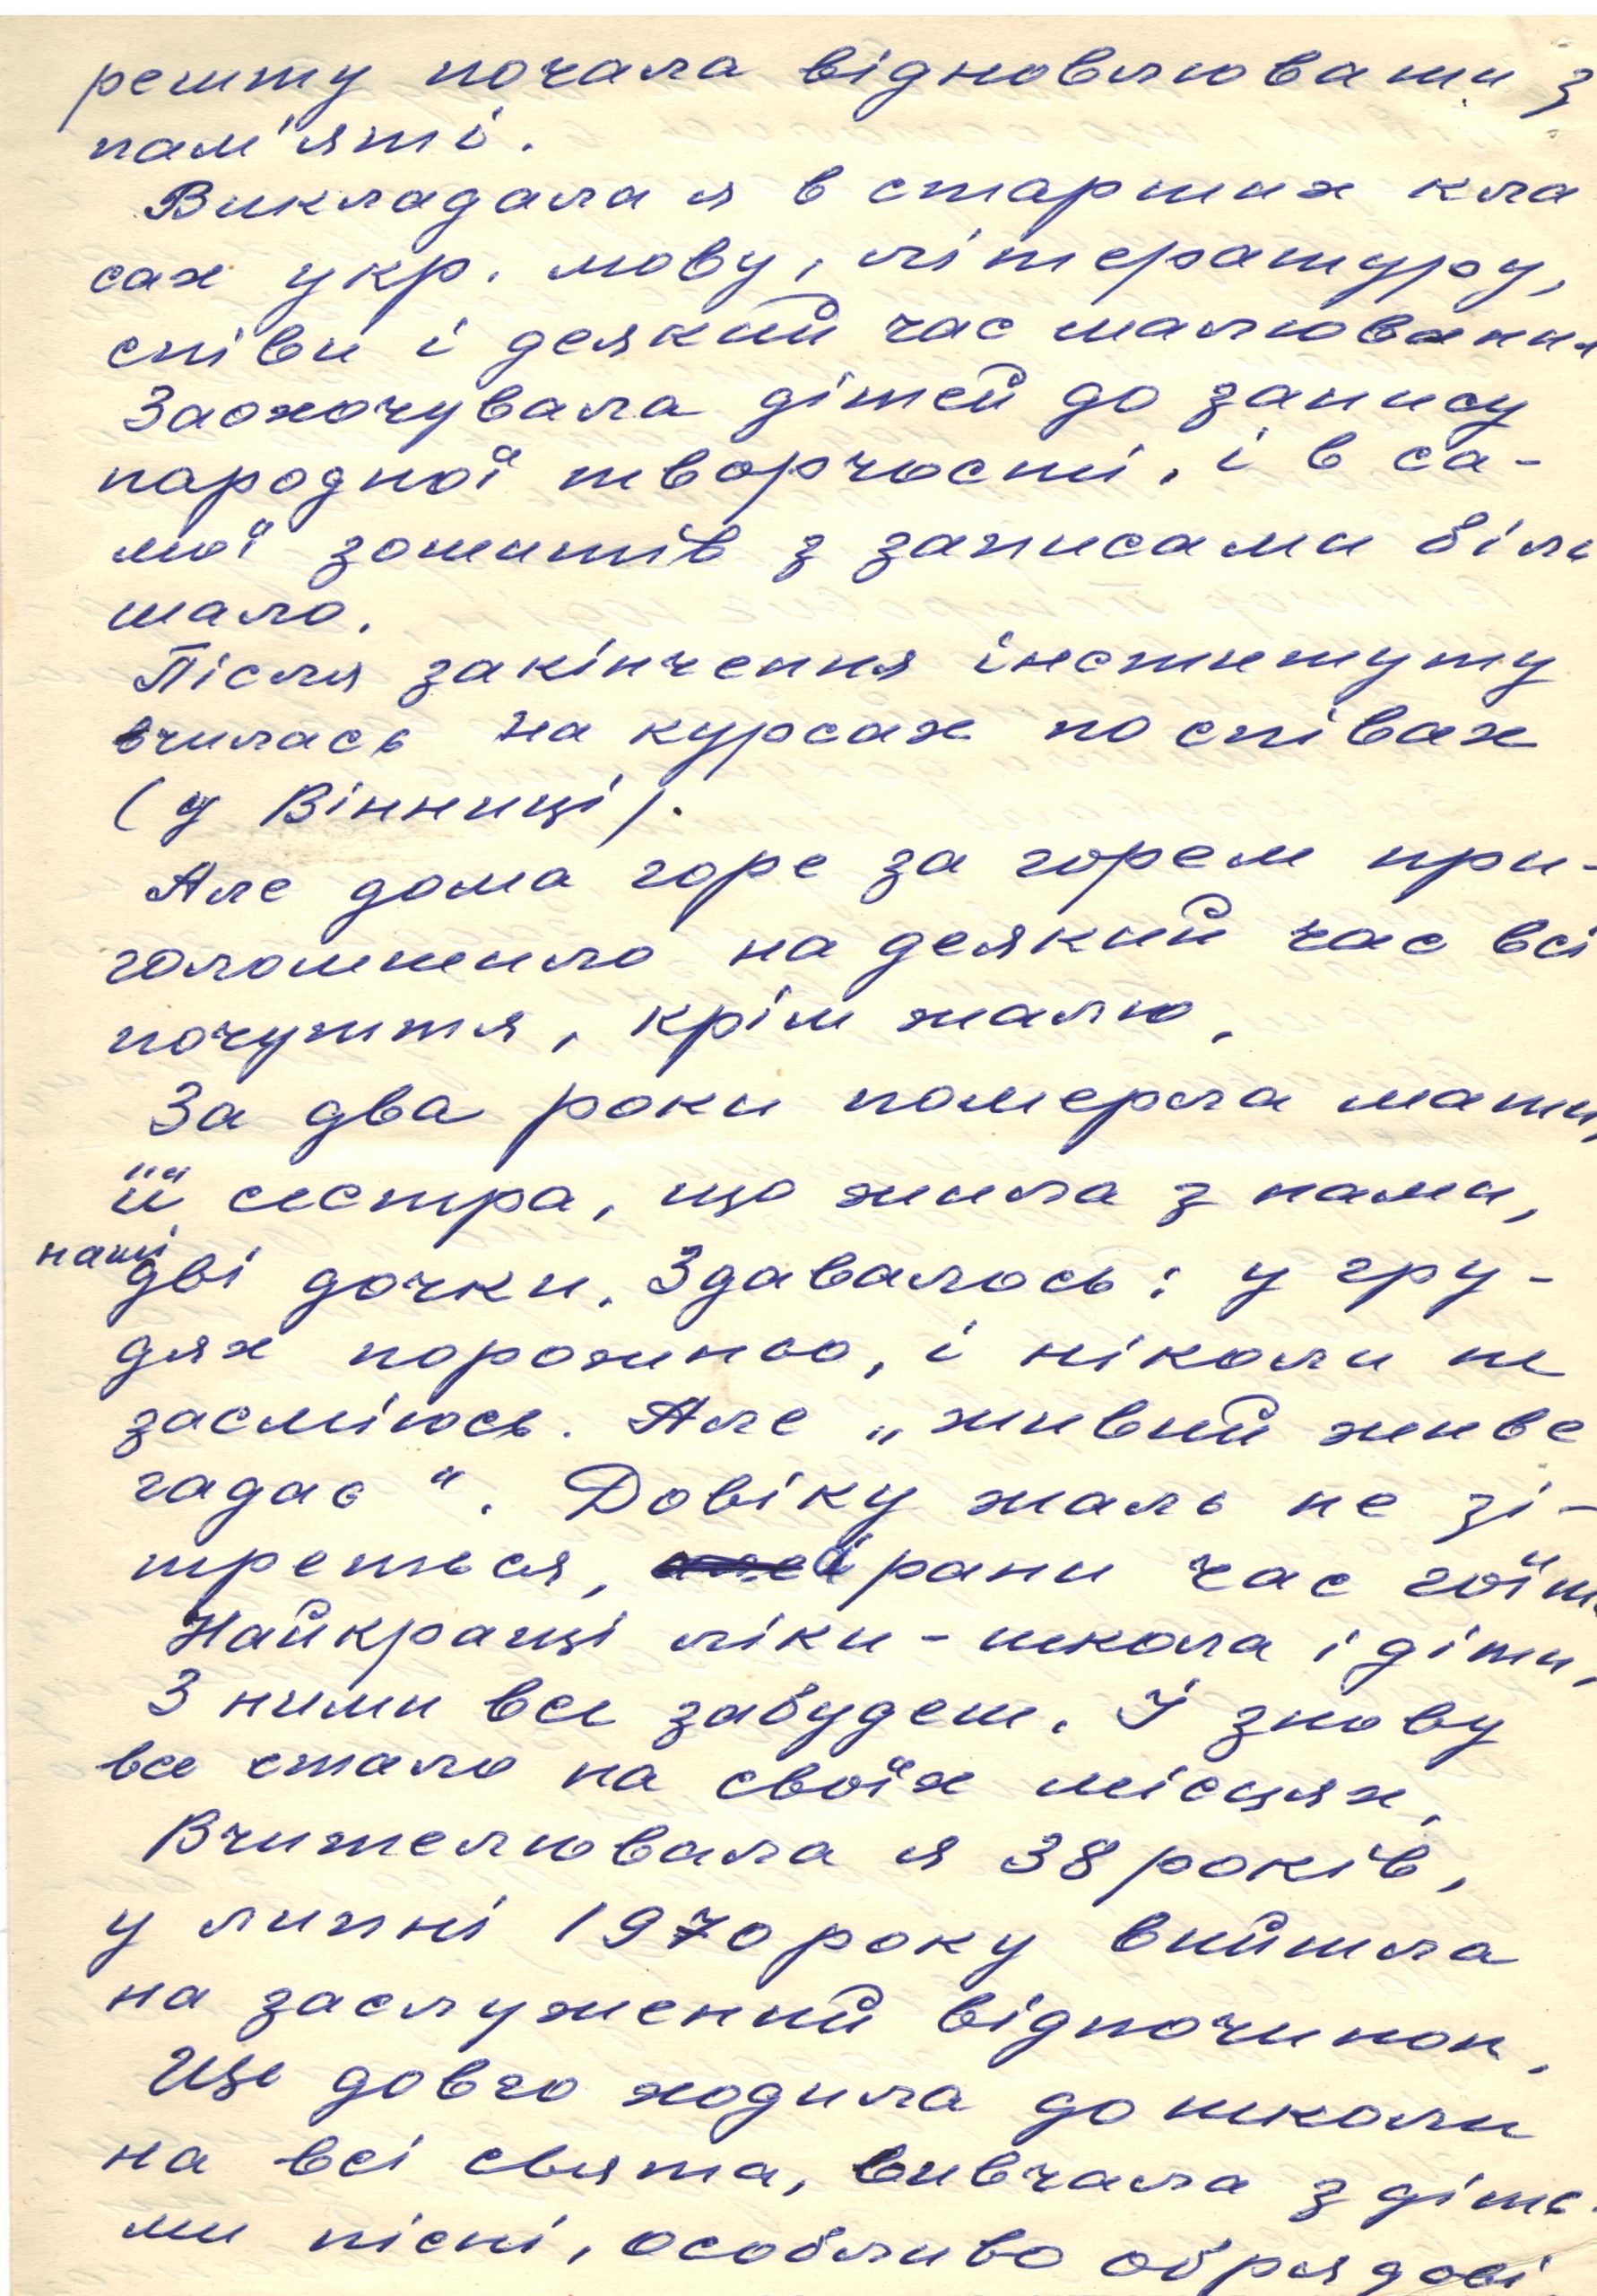 решту почала відновлювати з
пам'яті.
Викладала я в старших кла
сах укр. мову, літературу,
співи і деякий час малювання
Заохочувала дітей до запису
народної творчості, і в са-
мої зошитів з записами біль
шало.
Після закінчення інституту
вчилась на курсах по співах
(у Вінниці).
Але дома горе за горем при-
голомшило на деякий час всі
почуття, крім жалю.
За два роки померла мати,
її сестра, що жила з нами,
наші
дві дочки. Здавалось: у гру-
дях порожньо, і ніколи не
засміюсь. Але „живий живе
гадає". Довіку жаль не зі-
треться, і рани час гоїть
Найкращі ліки - школа і діти,
З ними все забудеш. І знову
все стало на своїх місцях.
Вчителювала я 38 років,
у липні 1970 року вийшла
на заслужений відпочинок.
Ще довго ходила до школи
на всі свята, вивчала з діть
ми пісні, особливо обрядові